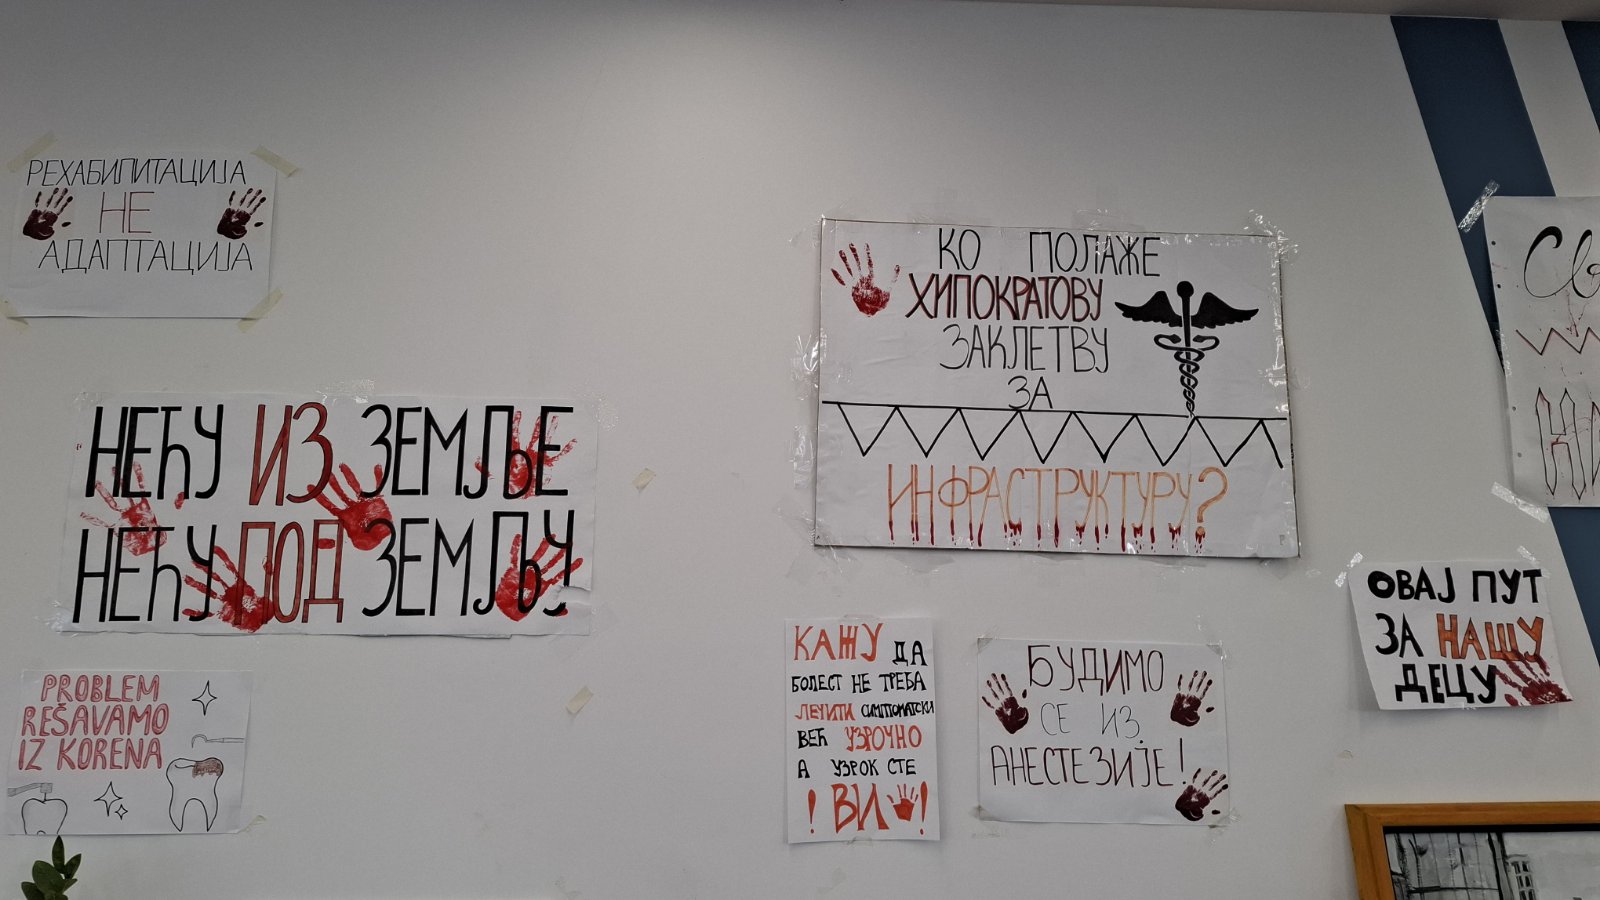 РЕХАБИЛИТАЦИЈА
НЕ
АДАПТАЦИЈА
НЕЋУ ИЗ ЗЕМЉЕ
НЕЋУ ПОД ЗЕМЉУ
PROBLEM
REŠAVAMO
IZ KORENA
КО ПОЛАЖЕ
ХИПОКРАТОВУ
ЗАКЛЕТВУ
ЗА
ИНФРАСТРУКТУРУ?
КАЖУ ДА
БОЛЕСТ НЕ ТРЕБА
ЛЕЧИТИ СИМПТОМАТСКИ
ВЕЋ УЗРОЧНО
А УЗРОК СТЕ
! ВИ !
БУДИМО
СЕ ИЗ
АНЕСТЕЗИЈЕ!
ОВАЈ ПУТ
ЗА НАШУ
ДЕЦУ